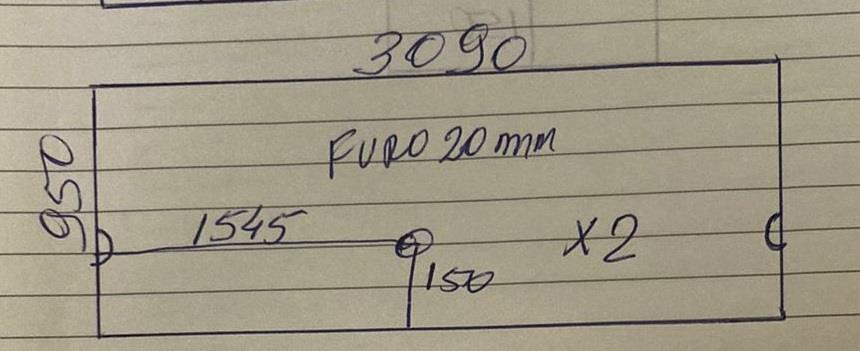 3090
FURO 20 mm
950
1545
X2
150